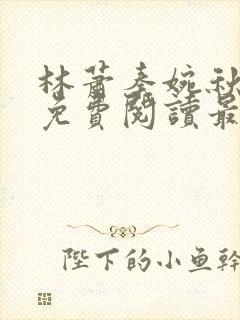 林蕭秦婉秋
免費閱讀最
陛下的小魚幹